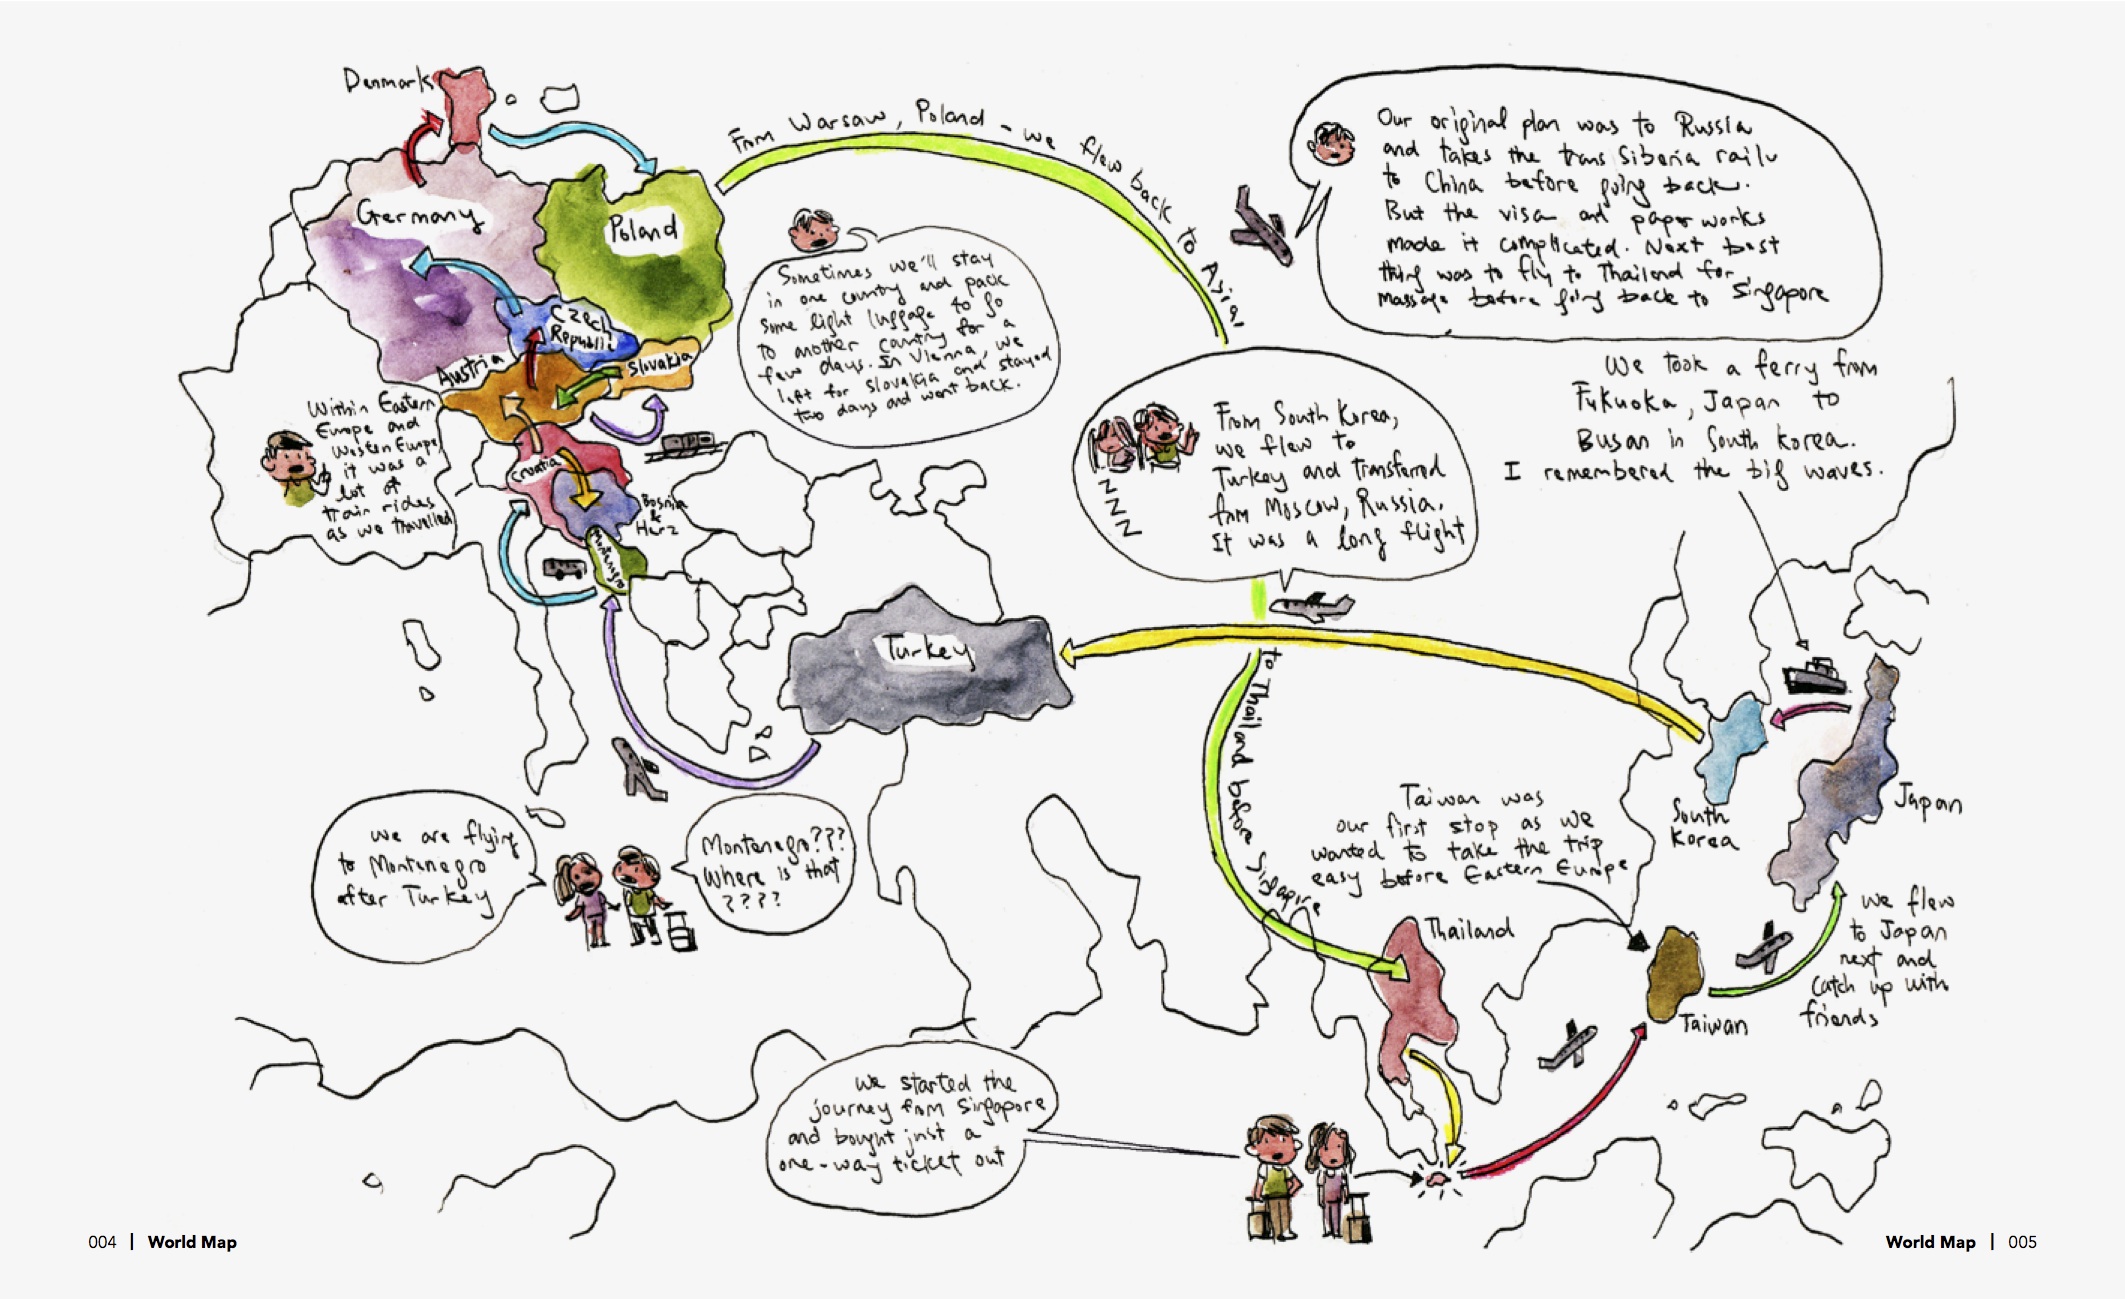 Denmark
Germany
Poland
Czech
Republic
Austria
Slovakia
Croatia
Bosnia
&
Herz
Montenegro
Turkey
From Warsaw, Poland - we flew back to Asia,
to Thailand before Singapore
Our original plan was to Russia
and takes the trans Siberia rail
to China before going back.
But the visa and paper works
made it complicated. Next best
thing was to fly to Thailand for
massage before going back to Singapore
Sometimes we'll stay
in one country and pack
some light luggage to go
to another country for a
few days. In Vienna, we
left for Slovakia and stayed
two days and went back.
Within Eastern
Europe and
Western Europe,
it was a
lot of
train rides
as we travelled
We took a ferry from
Fukuoka, Japan to
Busan in South Korea.
I remembered the big waves.
From South Korea,
we flew to
Turkey and transferred
from Moscow, Russia.
It was a long flight
Z
Z
Z
South
Korea
Japan
we are flying
to Montenegro
after Turkey
Montenegro???
Where is that
????
Taiwan was
our first stop as we
wanted to take the trip
easy before Eastern Europe
Thailand
Taiwan
we flew
to Japan
next and
catch up with
friends
we started the
journey from Singapore
and bought just a
one-way ticket out
004 | World Map
World Map | 005